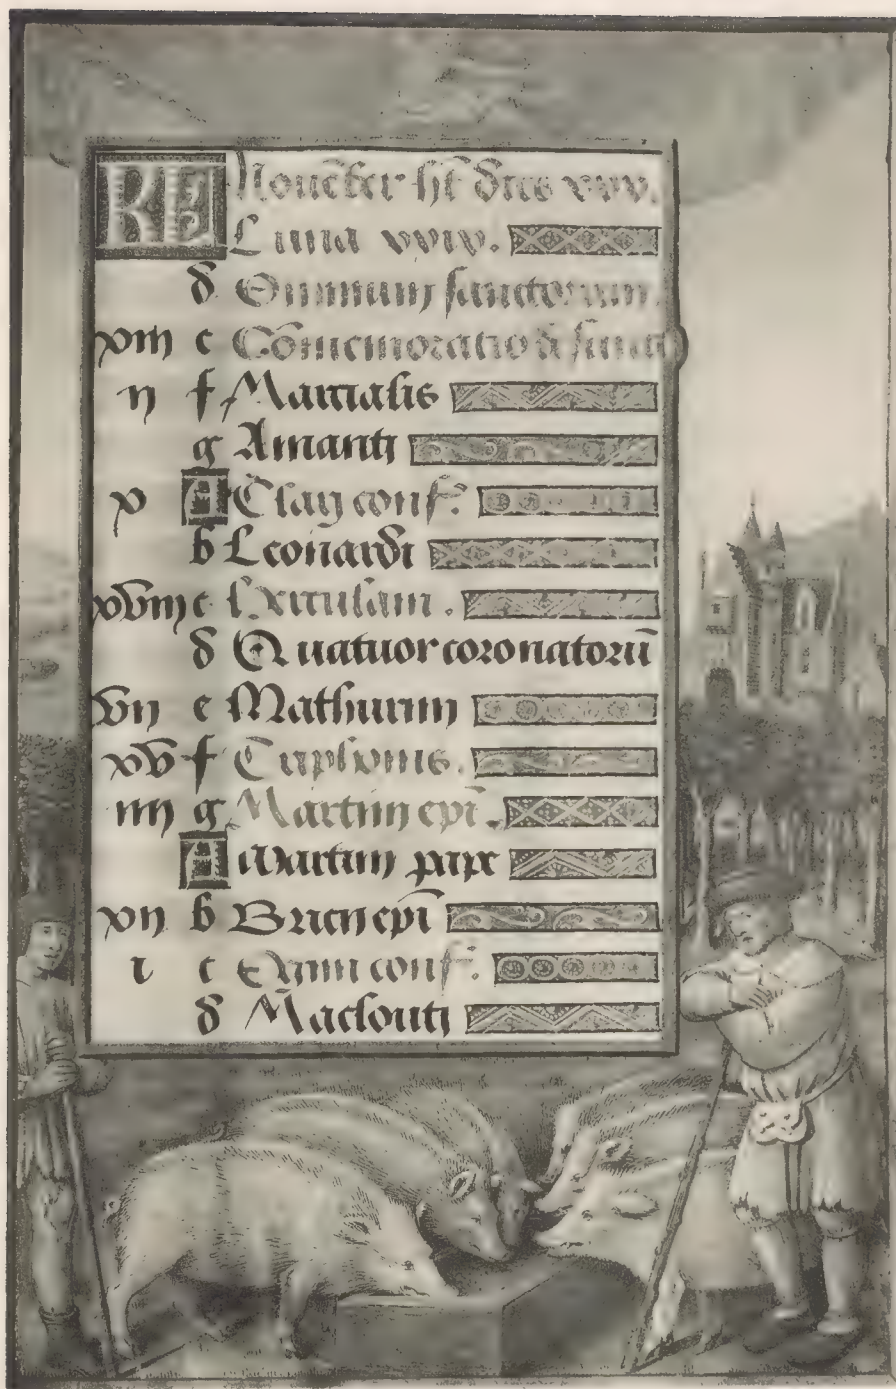 KL Nouēber hт̄ dies xxx.
Luna xxix.
d Omnium sanctorum.
xiii e Cōmemoratio
ii f Marcialis
g Amanti
x A Clari conf.
b Leonardi
xviii c
d Quatuor coronatorū
vii e Mathurini
xv f
iiii g Martini epī.
A Martini pape
xii b Bricij epī
i c conf.
d Macloutj